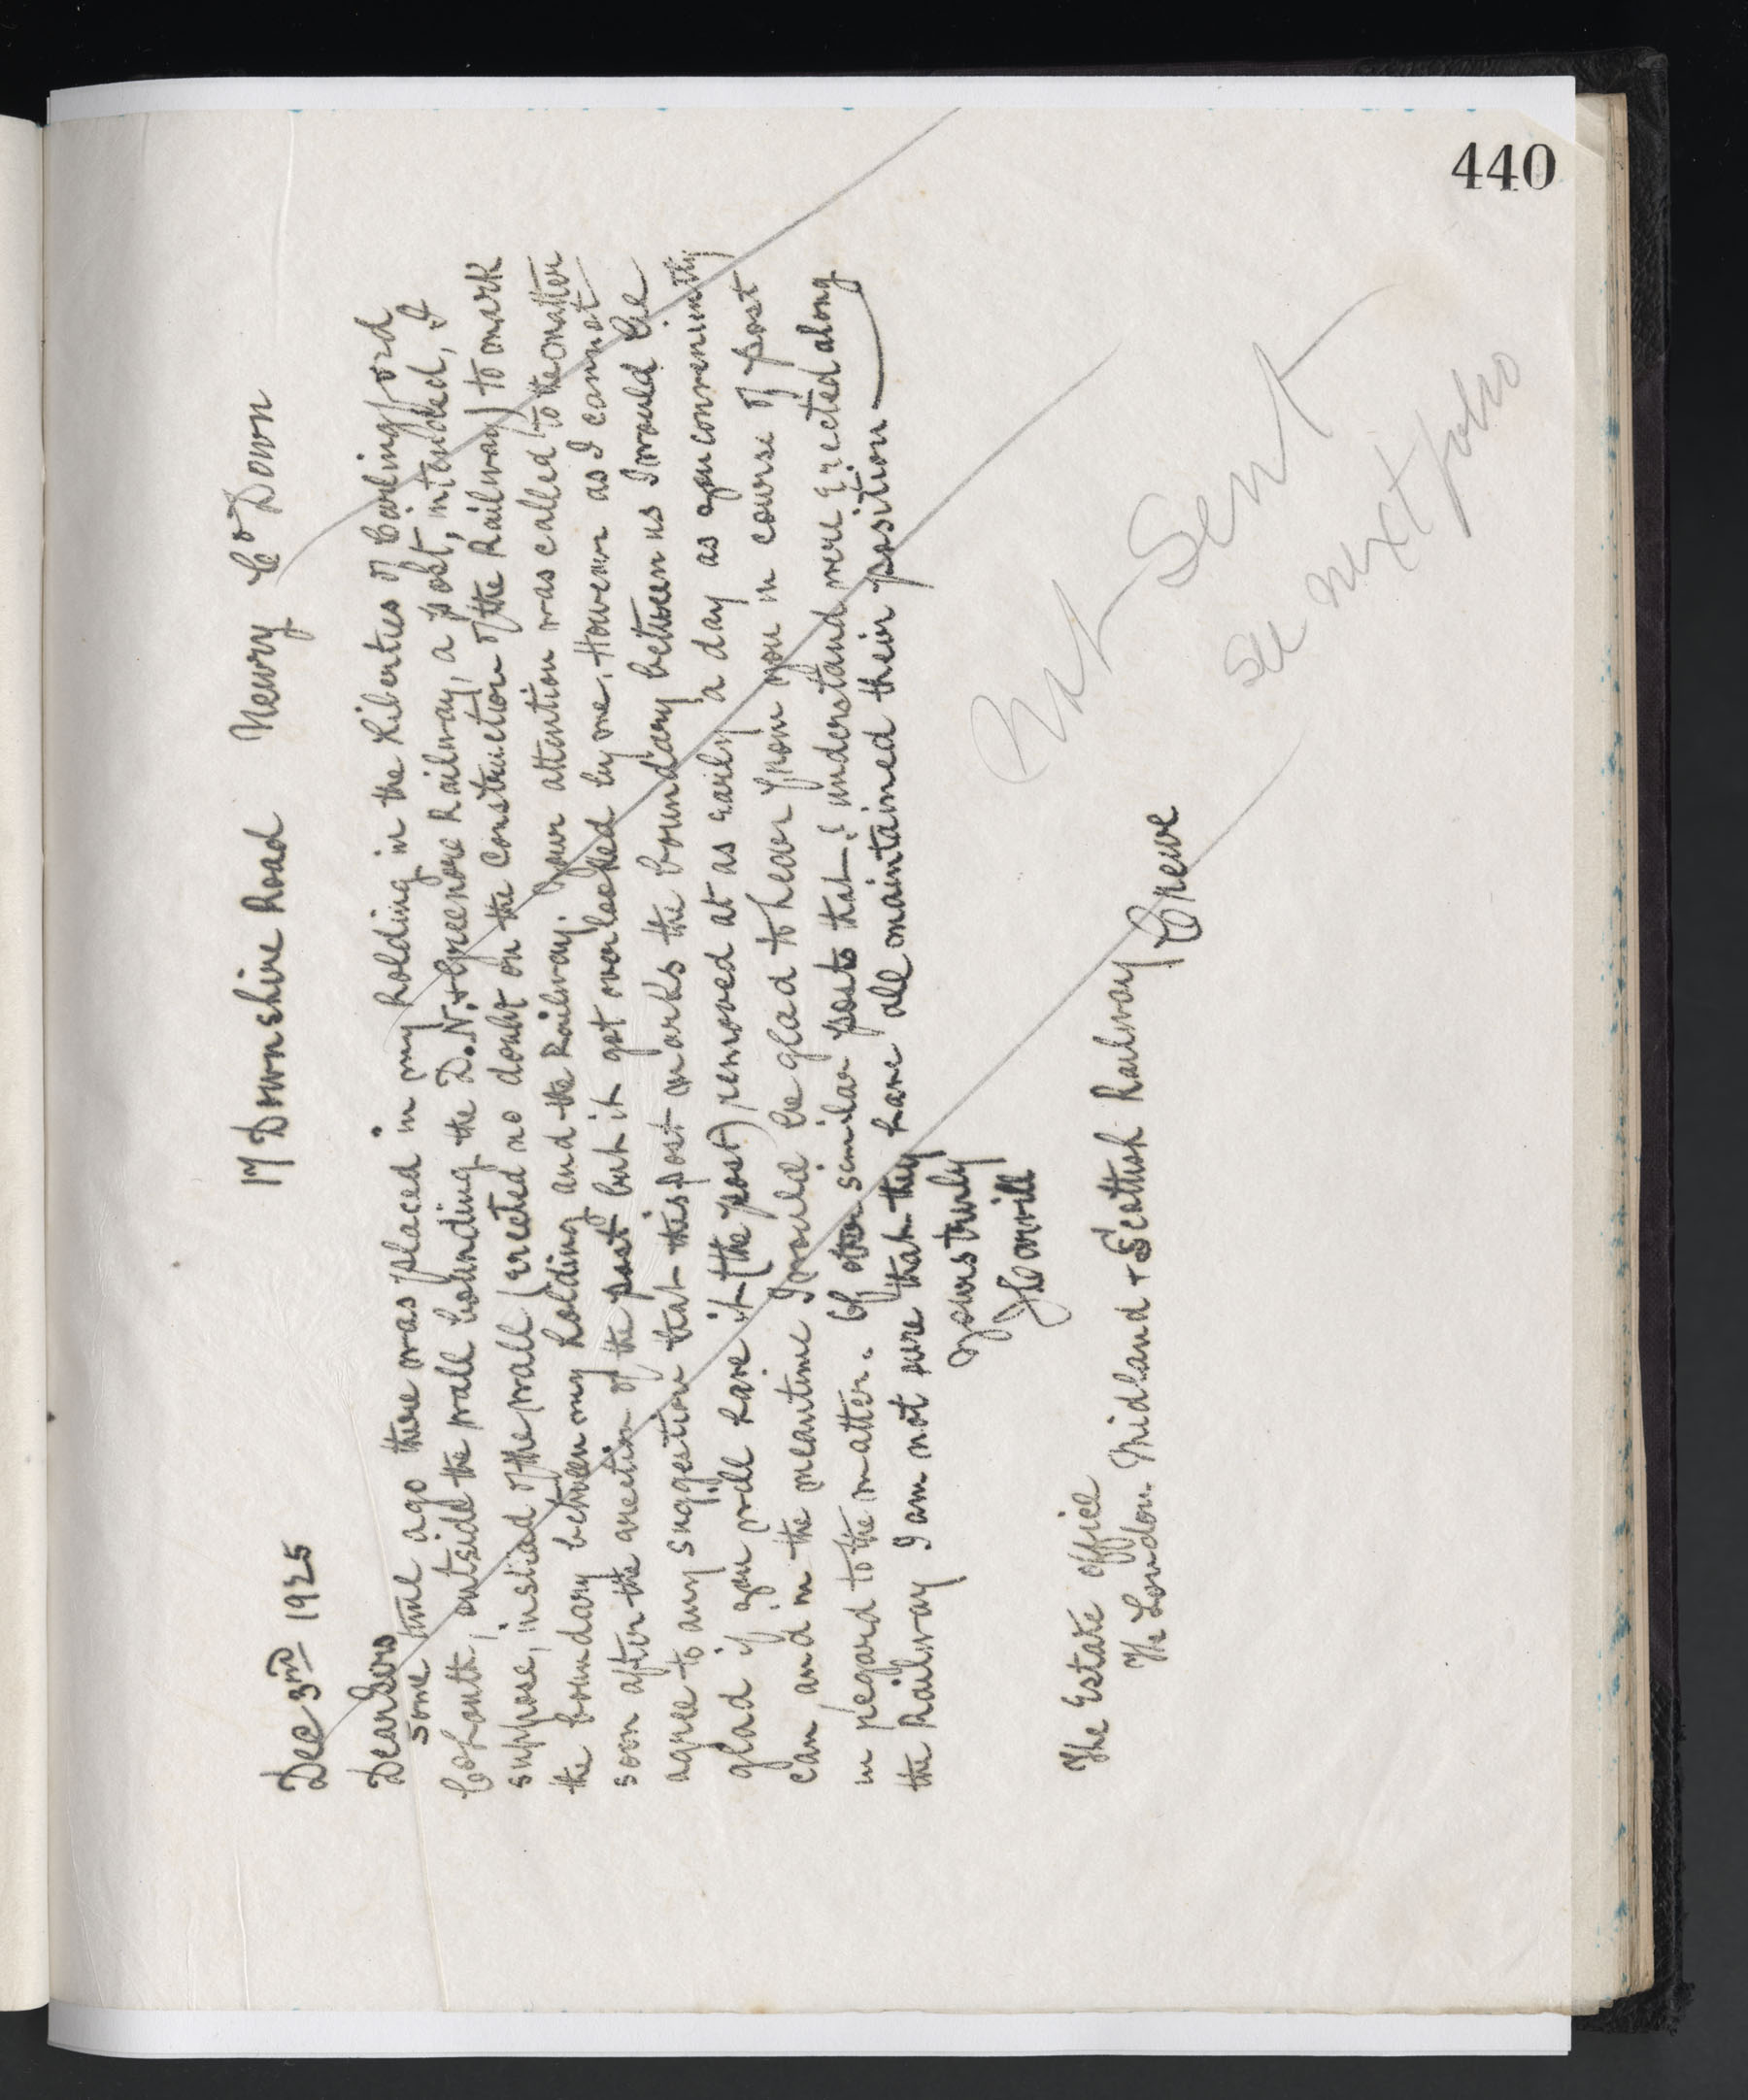 440
17 Downshire Road Newry Co Down
Dec 3rd 1925
Dear Sirs
Some time ago there was placed in my holding in the Liberties of Carlingford
Co Louth, outside the wall bounding the D. N. & Greenore Railway, a post, intended, I
suppose, instead of the wall (erected no doubt on the construction of the Railway) to mark
the boundary between my holding and the Railway. Your attention was called to the matter
soon after the erection of the post but it got overlooked by me. However as I cannot
agree to any suggestion that this post marks the boundary between us I would be
glad if you will have it (the post) removed at as early a day as you conveniently
can and in the meantime I would be glad to hear from you in course of post
in regard to the matter. Of other similar posts that I understand were erected along
the Railway I am not sure that they have all maintained their position
Yours truly
The Estate Office
The London Midland & Scottish Railway Crewe
Not Sent
See next folio